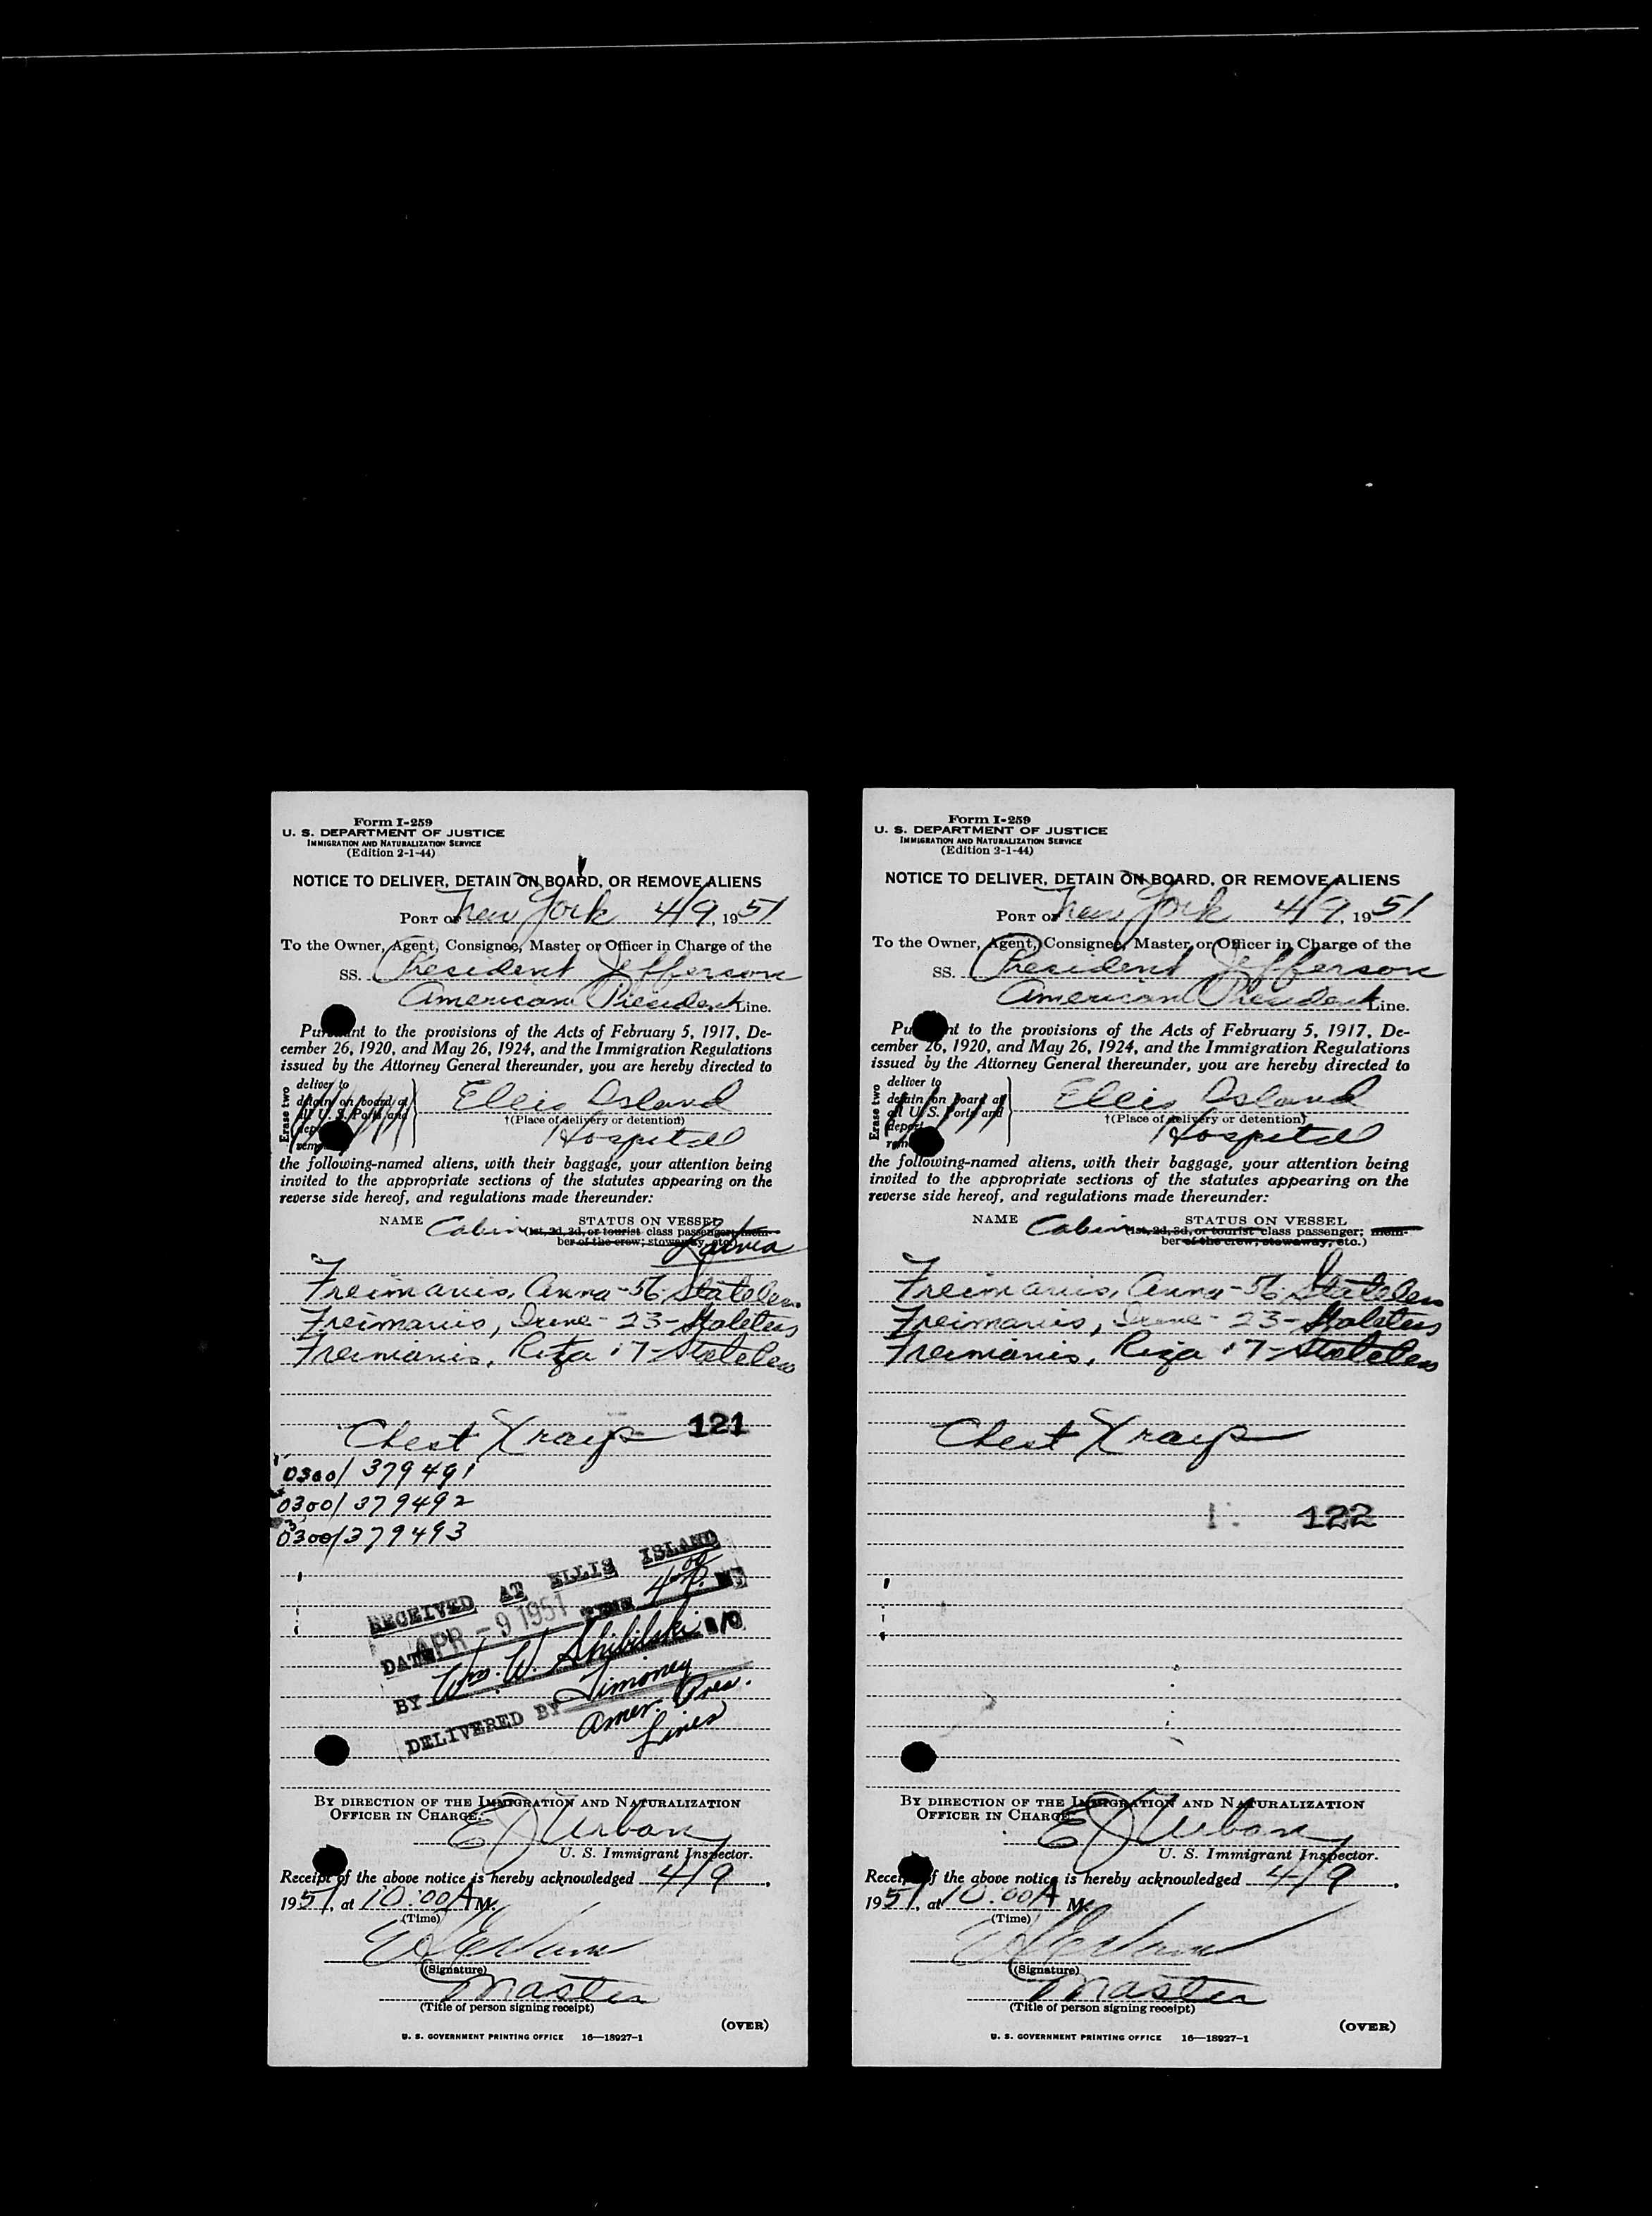 Form I-259
U. S. DEPARTMENT OF JUSTICE
IMMIGRATION AND NATURALIZATION SERVICE
(Edition 2-1-44)
NOTICE TO DELIVER, DETAIN ON BOARD, OR REMOVE ALIENS
PORT OF New York 4/9, 1951
To the Owner, Agent, Consignee, Master or Officer in Charge of the
SS. President Jefferson
American President Line.
Pursuant to the provisions of the Acts of February 5, 1917, De-
cember 26, 1920, and May 26, 1924, and the Immigration Regulations
issued by the Attorney General thereunder, you are hereby directed to
Erase two
deliver to
detain on board at
all U. S. Ports and
Ellis Island
†(Place of delivery or detention)
Hospital
the following-named aliens, with their baggage, your attention being
invited to the appropriate sections of the statutes appearing on the
reverse side hereof, and regulations made thereunder:
NAME Cabin STATUS ON VESSEL
(1st, 2d, 3d, or tourist class passenger; mem-
ber of the crew; stowaway, etc.)
Latvia
Freimanis, Anna - 56 Stateless
Freimanis, Irene - 23 - Stateless
Freimanis, Rita 17 - Stateless
Chest Xrays 121
0300/ 379491
0300/ 379492
0300/ 379493
RECEIVED AT ELLIS ISLAND
DATE APR - 9 1951 TIME 4 00 P. M
BY Wm. W.
DELIVERED BY Timoney
Amer. Pres.
Lines
BY DIRECTION OF THE IMMIGRATION AND NATURALIZATION
OFFICER IN CHARGE:
E J Urban
U. S. Immigrant Inspector.
Receipt of the above notice is hereby acknowledged 4/9,
1951, at 10:00 A M.
(Time)
(Signature)
Master
(Title of person signing receipt)
(OVER)
U. S. GOVERNMENT PRINTING OFFICE 16—18927-1
Form I-259
U. S. DEPARTMENT OF JUSTICE
IMMIGRATION AND NATURALIZATION SERVICE
(Edition 2-1-44)
NOTICE TO DELIVER, DETAIN ON BOARD, OR REMOVE ALIENS
PORT OF New York 4/9, 1951
To the Owner, Agent, Consignee, Master or Officer in Charge of the
SS. President Jefferson
American President Line.
Pursuant to the provisions of the Acts of February 5, 1917, De-
cember 26, 1920, and May 26, 1924, and the Immigration Regulations
issued by the Attorney General thereunder, you are hereby directed to
Erase two
deliver to
detain on board at
all U. S. Ports and
deport
Ellis Island
†(Place of delivery or detention)
Hospital
the following-named aliens, with their baggage, your attention being
invited to the appropriate sections of the statutes appearing on the
reverse side hereof, and regulations made thereunder:
NAME Cabin STATUS ON VESSEL
(1st, 2d, 3d, or tourist class passenger; mem-
ber of the crew; stowaway, etc.)
Freimanis, Anna - 56 Stateless
Freimanis, Irene - 23 - Stateless
Freimanis, Riza 17 - Stateless
Chest Xrays
122
BY DIRECTION OF THE IMMIGRATION AND NATURALIZATION
OFFICER IN CHARGE:
E J Urban
U. S. Immigrant Inspector.
Receipt of the above notice is hereby acknowledged 4/9,
1951, at 10:00 A M.
(Time)
(Signature)
Master
(Title of person signing receipt)
(OVER)
U. S. GOVERNMENT PRINTING OFFICE 16—18927-1